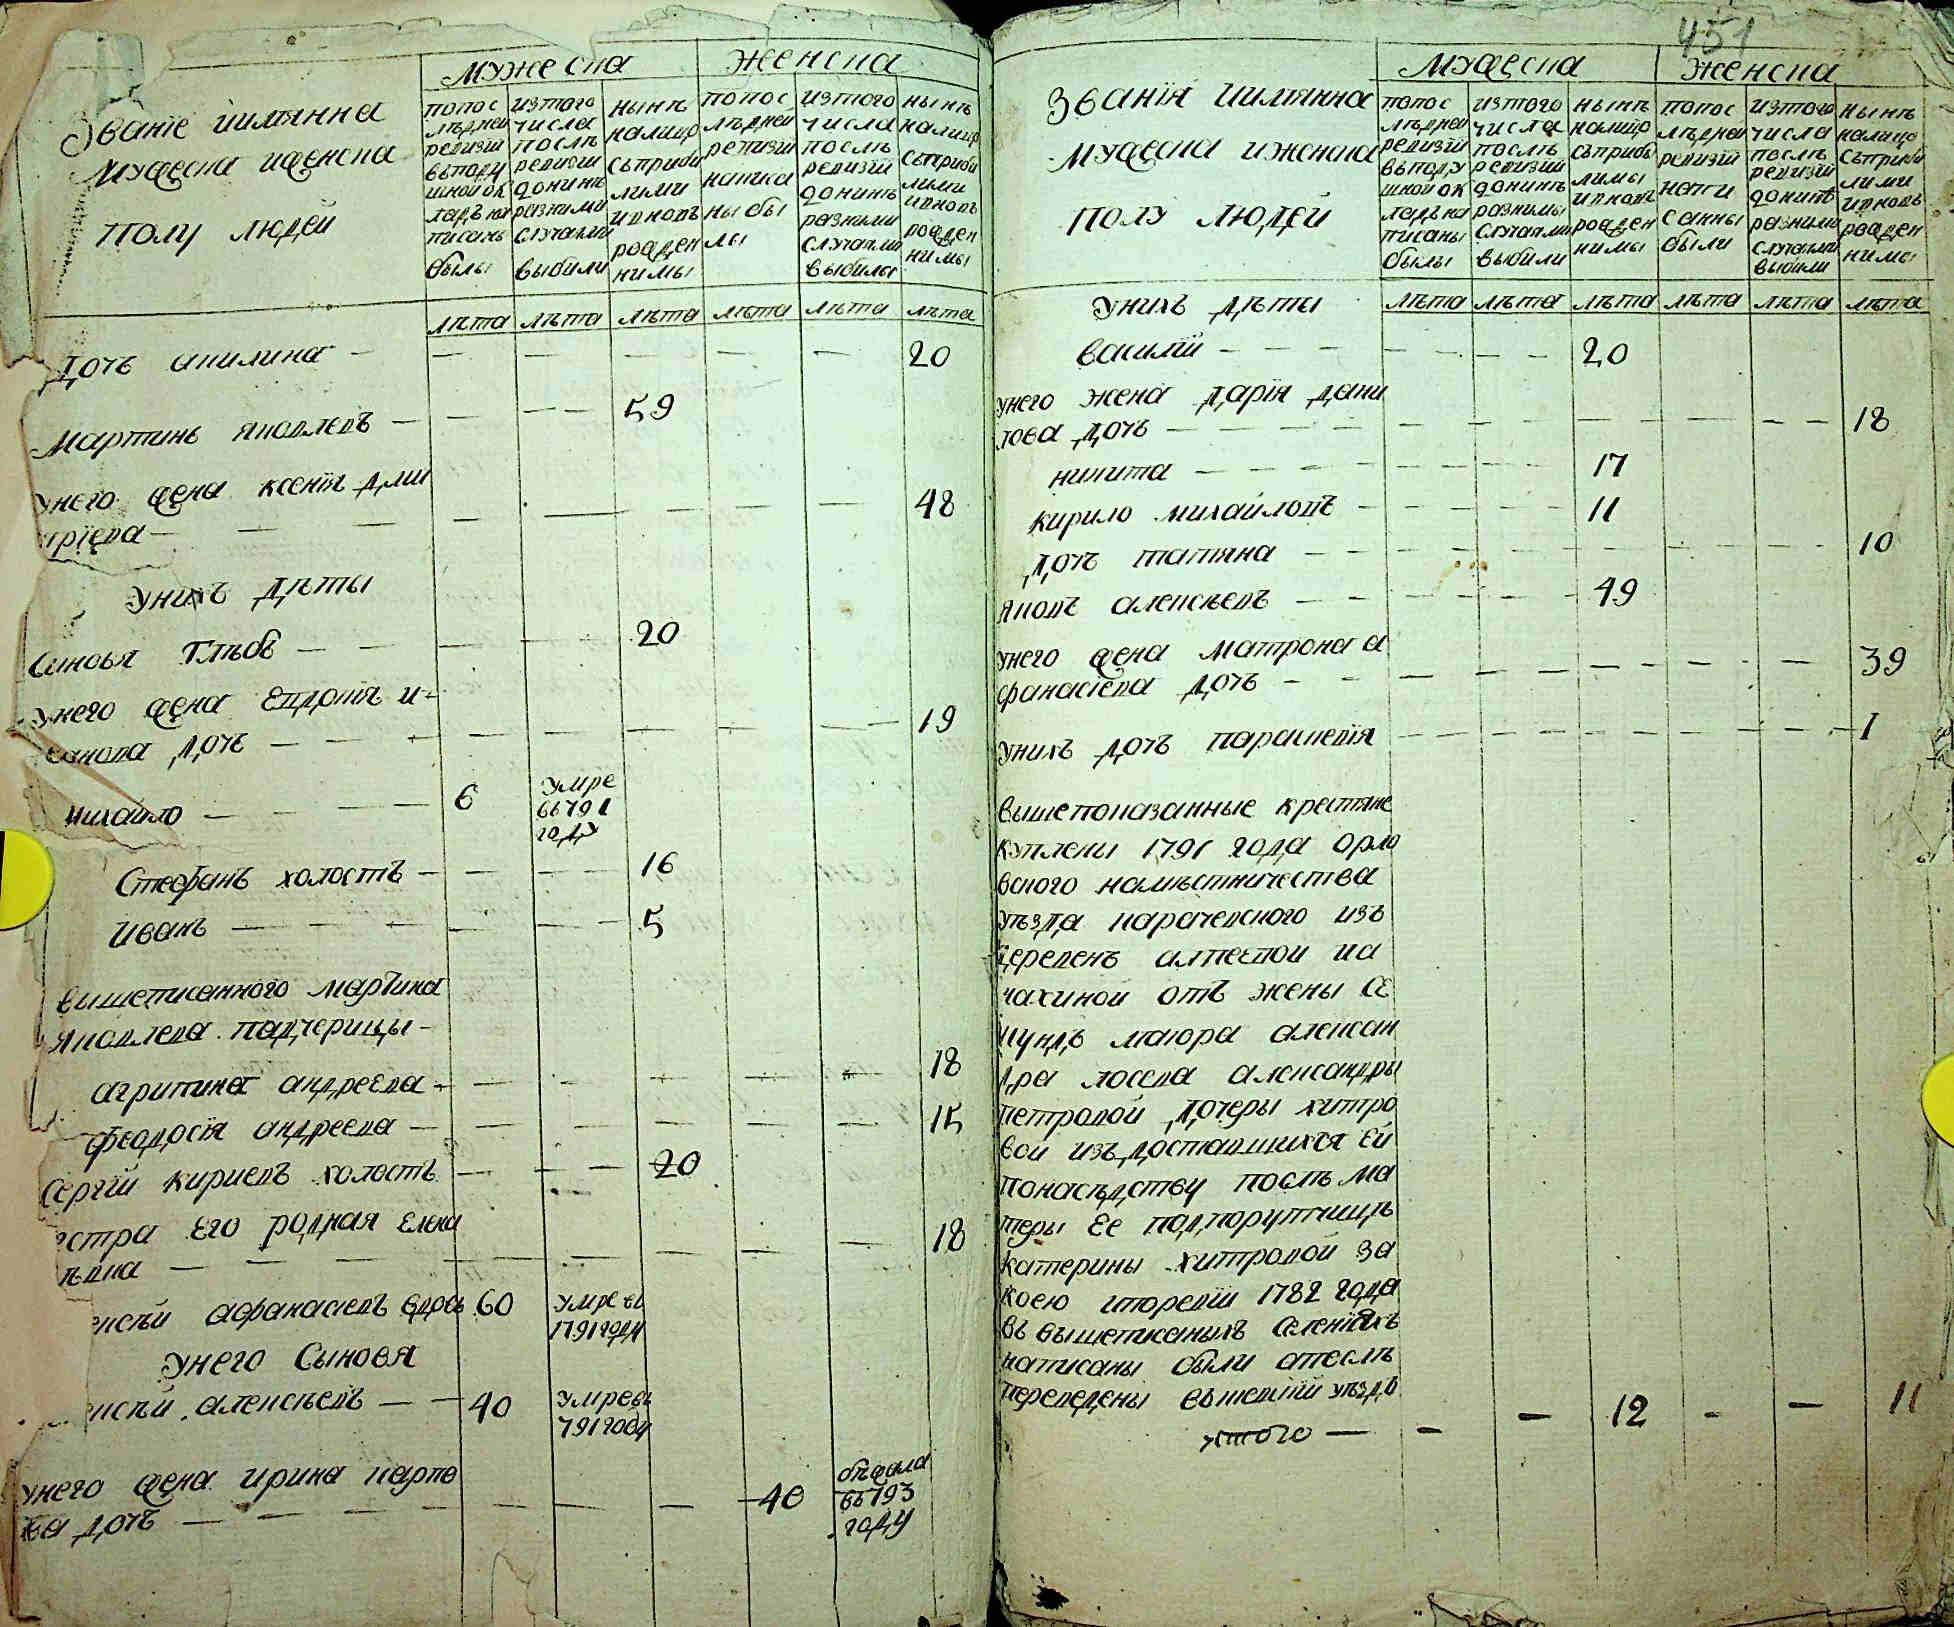 Званїе ийимянна
Мужеска иженска
Полу людей
Мужеска
Женска
попос
лѣдней
ревизїи
вподу
шной ок
ладъ на
писаны
былы
изтого
числа
послѣ
ревизїи
донинѣ
разними
случаями
выбили
нынѣ
налицо
съприбы
лими
ивновь
рожден
нимы
попос
лѣдней
ревизїи
написа
ны бы
лы
изтого
числа
послѣ
ревизїи
донинѣ
разними
случаями
выбилы
нынѣ
налицо
съприбы
лими
ивновь
рожден
нимы
лѣта лѣта лѣта лѣта лѣта лѣта
дочь акилина — 20
Мартинъ яковлевъ — 59
унего жена ксенїя дми
трїева — 48
унихъ дѣты
Синовья Глѣбъ — 20
унего жена Евдокия и-
ванова дочь — 19
михайло — 6 умре
вь791
году
Стефанъ холостъ — 16
иванъ — 5
вышеписанного мартина
яковлева падчерицы —
агрипина андреева — 18
феодосїя андреева — 15
Сергїй кириевъ холостъ — 20
естра его родная елена
— 18
ексѣй афанасїевъ вдовъ 60 умре вь
1791году
унего Сыновя
ексѣй алексѣевъ — 40 умревь
791году
унего жена ирина карпо
ва дочь — 40 бѣжала
вь793
году
451
Званїя ийимянна
Мужеска иженска
полу людей
Мужеска
Женска
попос
лѣдней
ревизїи
вподу
шной ок
ладъ на
писаны
былы
изтого
числа
послѣ
ревизїи
донинѣ
разнимы
случаями
выбили
нынѣ
налицо
съприбы
лимы
ивновь
рожден
нимы
попос
лѣдней
ревизїи
напи
санны
были
изтого
числа
послѣ
ревизїи
донинѣ
разними
случаями
выбили
нынѣ
налицо
съприбы
лими
ивновь
рожден
нимы
унихъ дѣты
лѣта лѣта лѣта лѣта лѣта лѣта
василїй — 20
унего жена дарїя дани
лова дочь — 18
никита — 17
кирило михайловъ — 11
дочь татяна — 10
яковъ алексѣевъ — 49
унего жена матрона а
фанасїева дочь — 39
унихъ дочь параскевїя — 1
вышепоказанные крестяне
куплены 1791 года орло
вского намѣстничества
уѣзда карачевского изъ
деревень алтесвой иа
чахиной отъ жены Се
кундъ маюра алексан
дра лосева александры
петровой дочеры хитро
вой изъ доставшихся ей
понаслѣдству послѣ ма
теры ее подпорутчицѣ
катерины хитровой за
коею иповревїзи 1782 года
въ вышеписаныхъ Селенїяхъ
написаны были апослѣ
переведены въмешїй уѣздъ
итого — — — 12 — — 11